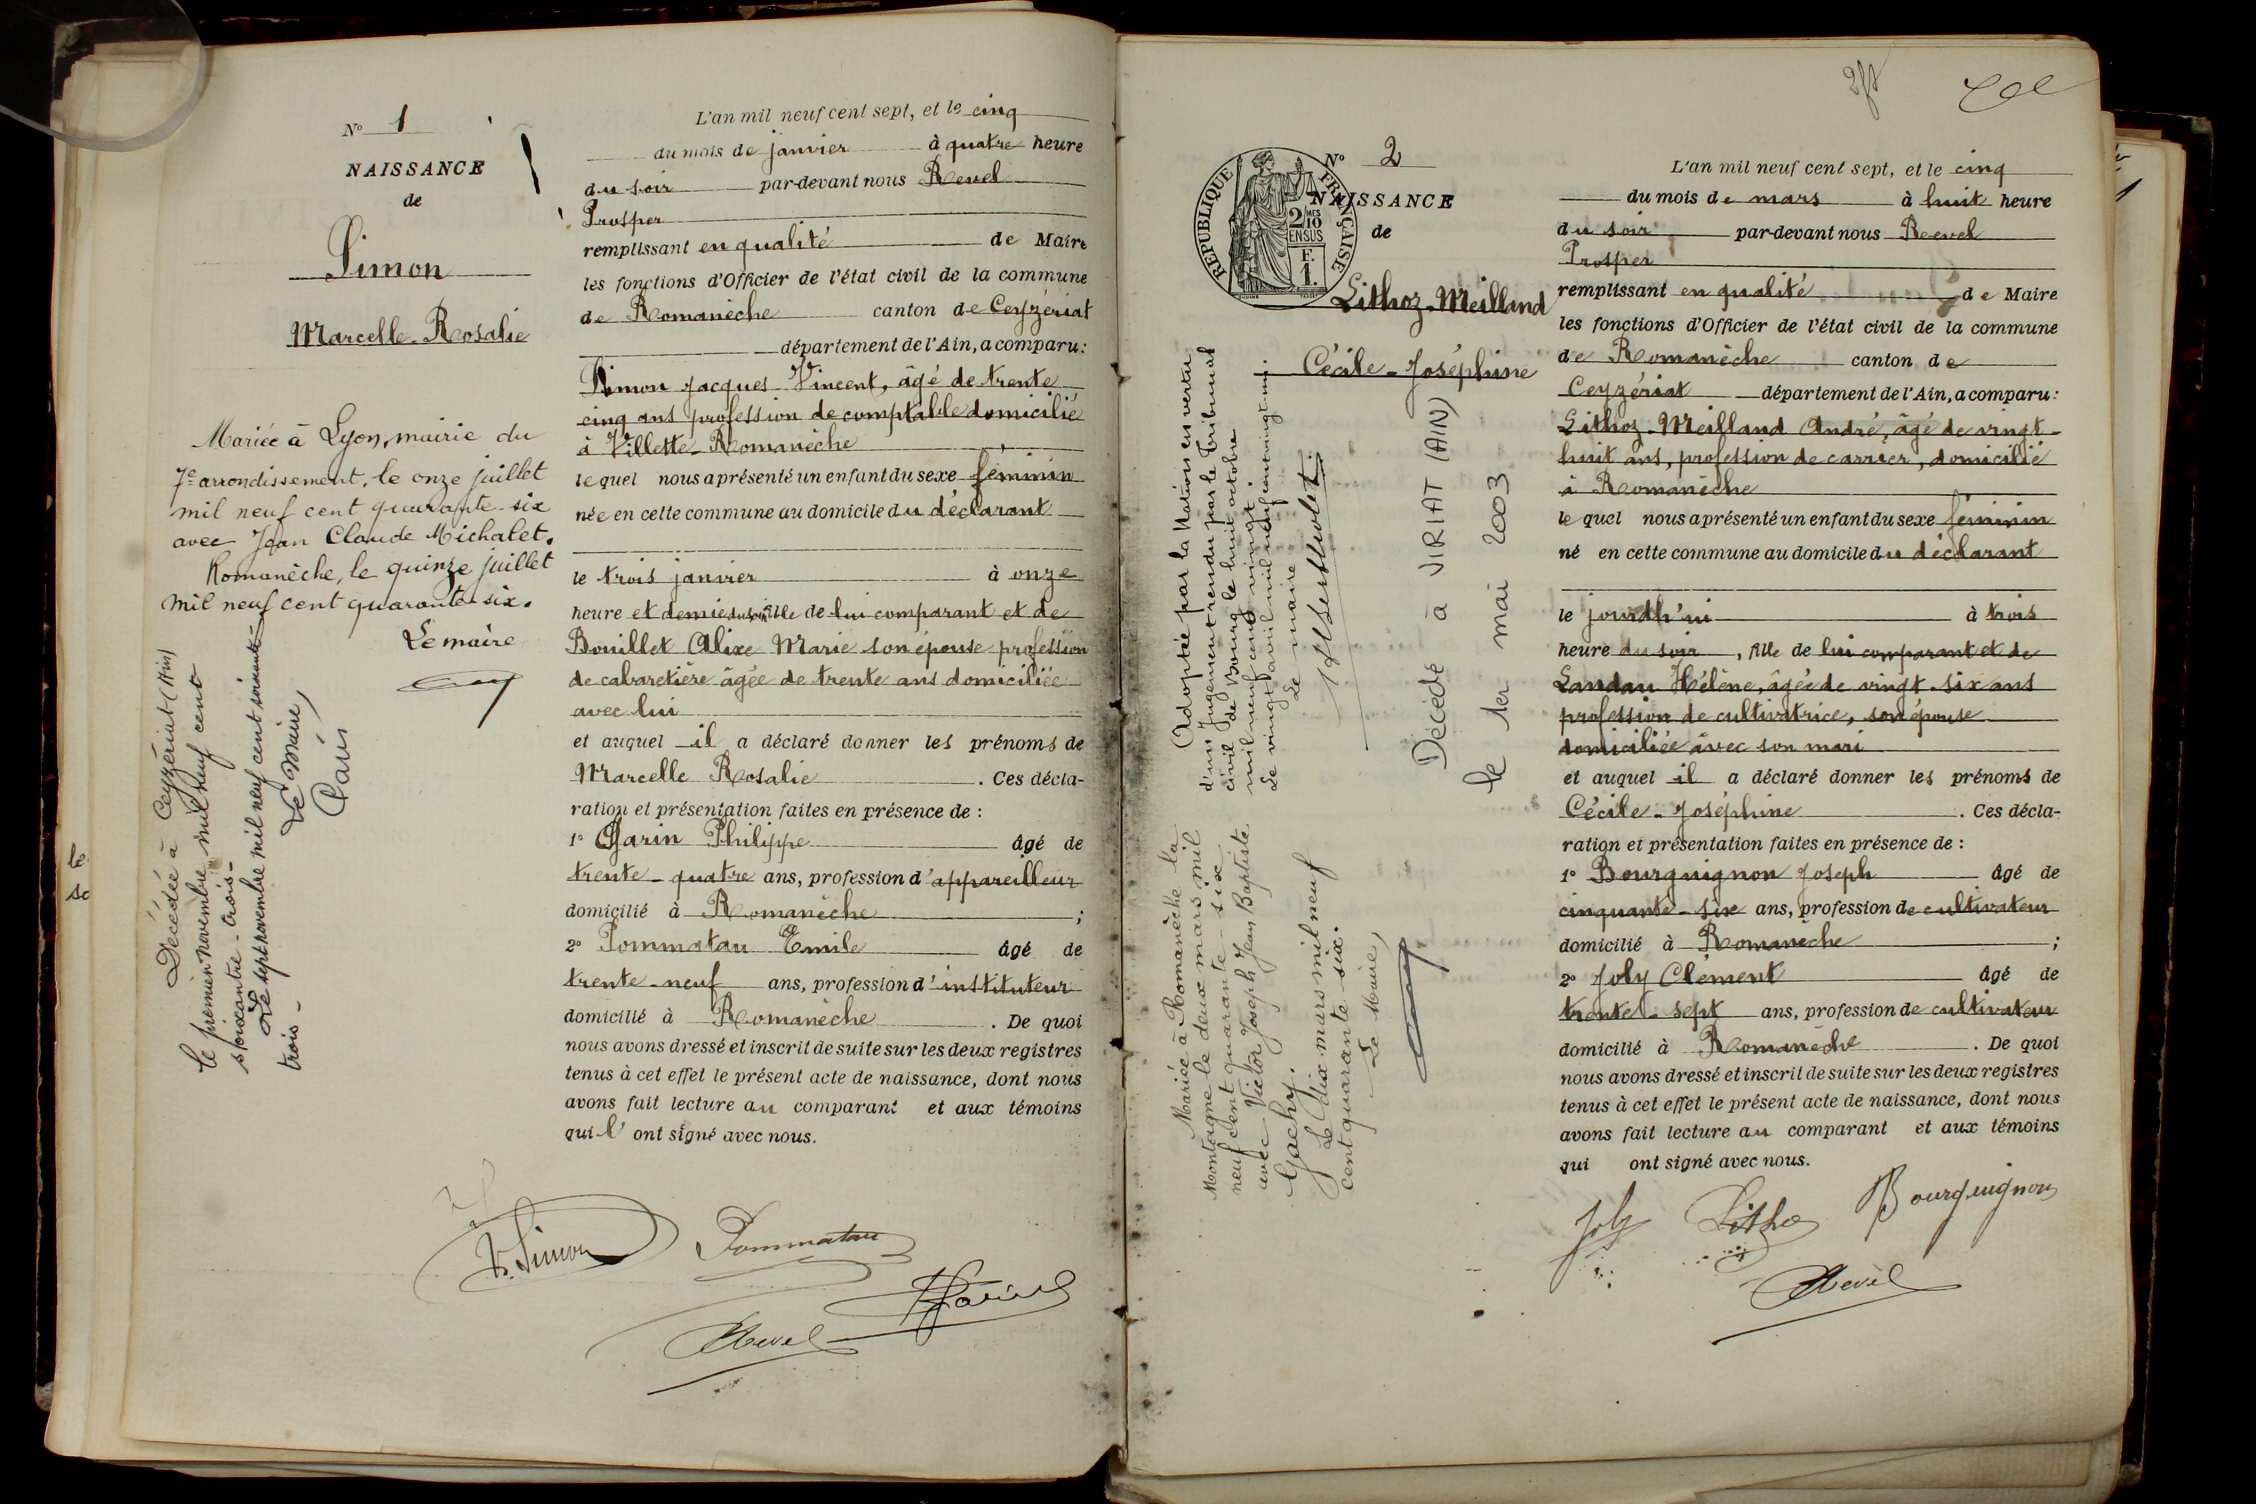 N° 1
NAISSANCE
de
Simon
Marcelle-Rosalie
Mariée à Lyon, mairie du
7e arrondissement, le onze juillet
mil neuf cent quarante-six
avec Jean Claude Michalet.
Romanèche, le quinze juillet
mil neuf cent quarante-six.
Le maire
Décédée à Ceyzériat (Ain)
le premier novembre mil neuf cent
soixante-trois-
Le sept novembre mil neuf cent soixante-
trois-
Le Maire,
L'an mil neuf cent sept, et le cinq
du mois de janvier à quatre heure
du soir par-devant nous Revel
Prosper
remplissant en qualité de Maire
les fonctions d'Officier de l'état civil de la commune
de Romanèche canton de Ceyzériat
département de l'Ain, a comparu:
Simon Jacques Vincent, âgé de trente
cinq ans profession de comptable domicilié
à Villette-Romanèche
lequel nous a présenté un enfant du sexe féminin
née en cette commune au domicile du déclarant
le trois janvier à onze
heure et demie du soir fille de lui comparant et de
Bouillet Alixe Marie son épouse profession
de cabaretière âgée de trente ans domiciliée
avec lui
et auquel il a déclaré donner les prénoms de
Marcelle Rosalie. Ces décla-
ration et présentation faites en présence de :
1° Garin Philippe âgé de
trente-quatre ans, profession d'appareilleur
domicilié à Romanèche ;
2° Pommatau Emile âgé de
trente-neuf ans, profession d'instituteur
domicilié à Romanèche. De quoi
nous avons dressé et inscrit de suite sur les deux registres
tenus à cet effet le présent acte de naissance, dont nous
avons fait lecture au comparant et aux témoins
qui l' ont signé avec nous.
V. Simon Pommatau
Garin
Revel
le
sc
N° 2
NAISSANCE
de
RÉPUBLIQUE FRANÇAISE
2/10 MES
EN SUS
F.
1.
Lithoz-Meilland
Cécile-Joséphine
Adoptée par la Nation en vertu
d'un Jugement rendu par le Tribunal
civil de Bourg le huit octobre
mil neuf cent vingt.
Le vingt avril mil neuf cent vingt-un.
Le maire
Décédé à VIRIAT (AIN)
le 1er mai 2003
Mariée à Romanèche la
Montagne le deux mars mil
neuf cent quarante-six
avec Victor Joseph Jean Baptiste
Gachy.
Le dix mars mil neuf
cent quarante six.
Le Maire,
L'an mil neuf cent sept, et le cinq
du mois de mars à huit heure
du soir par-devant nous Revel
Prosper
remplissant en qualité de Maire
les fonctions d'Officier de l'état civil de la commune
de Romanèche canton de
Ceyzériat département de l'Ain, a comparu:
Lithoz-Meilland André, âgé de vingt-
huit ans, profession de carrier, domicilié
à Romanèche
lequel nous a présenté un enfant du sexe féminin
né en cette commune au domicile du déclarant
le jourdh'ui à trois
heure du soir, fille de lui comparant et de
Landau Hélène, âgée de vingt-six ans
profession de cultivatrice, son épouse
domiciliée avec son mari
et auquel il a déclaré donner les prénoms de
Cécile-Joséphine. Ces décla-
ration et présentation faites en présence de :
1° Bourguignon Joseph âgé de
cinquante-six ans, profession de cultivateur
domicilié à Romanèche ;
2° Joly Clément âgé de
trente-sept ans, profession de cultivateur
domicilié à Romanèche. De quoi
nous avons dressé et inscrit de suite sur les deux registres
tenus à cet effet le présent acte de naissance, dont nous
avons fait lecture au comparant et aux témoins
qui ont signé avec nous.
Joly Litho Bourguignon
Revel